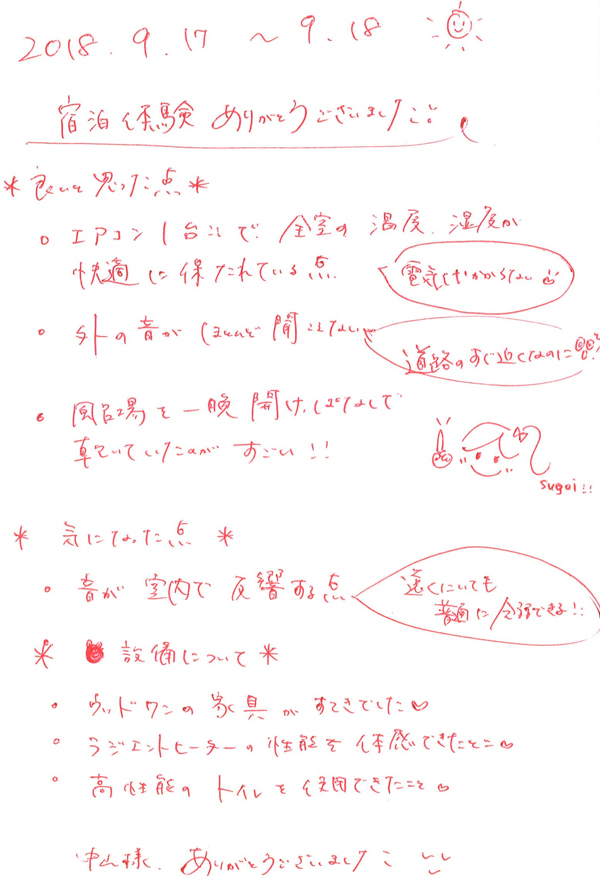 2018.9.17 ～ 9.18
宿泊体験 ありがとうございました
＊良いと思った点＊
エアコン1台だけで、全室の温度、湿度が
快適に保たれている点
電気代かからない
・外の音がほとんど聞こえない
道路のすぐ近くなのに!?
・風呂場を一晩開けっぱなしで
乾いていたのがすごい!!
sugoi!!
＊気になった点＊
・音が室内で反響する点
遠くにいても
普通に会話できる!!
＊設備について＊
・ウッドワンの家具がすてきでした♡
・ラジエントヒーターの性能を体感できたこと♡
・高性能のトイレを使用できたこと♡
中山様、ありがとうございました